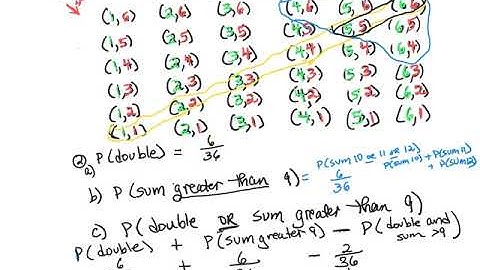 (1,6) (2,6) (3,6) (4,6) (5,6) (6,6)
(1,5) (2,5) (3,5) (4,5) (5,5) (6,5)
(1,4) (2,4) (3,4) (4,4) (5,4) (6,4)
(1,3) (2,3) (3,3) (4,3) (5,3) (6,3)
(1,2) (2,2) (3,2) (4,2) (5,2) (6,2)
(1,1) (2,1) (3,1) (4,1) (5,1) (6,1)
② a) P(double) = 6/36
P(sum 10 or 11 or 12)
P(sum 10) + P(sum 11) + P(sum 12)
b) P(sum greater than 9) = 6/36
c) P(double OR sum greater than 9)
P(double) + P(sum greater 9) - P(double and sum >9)
6 + 6/36 - 2/36